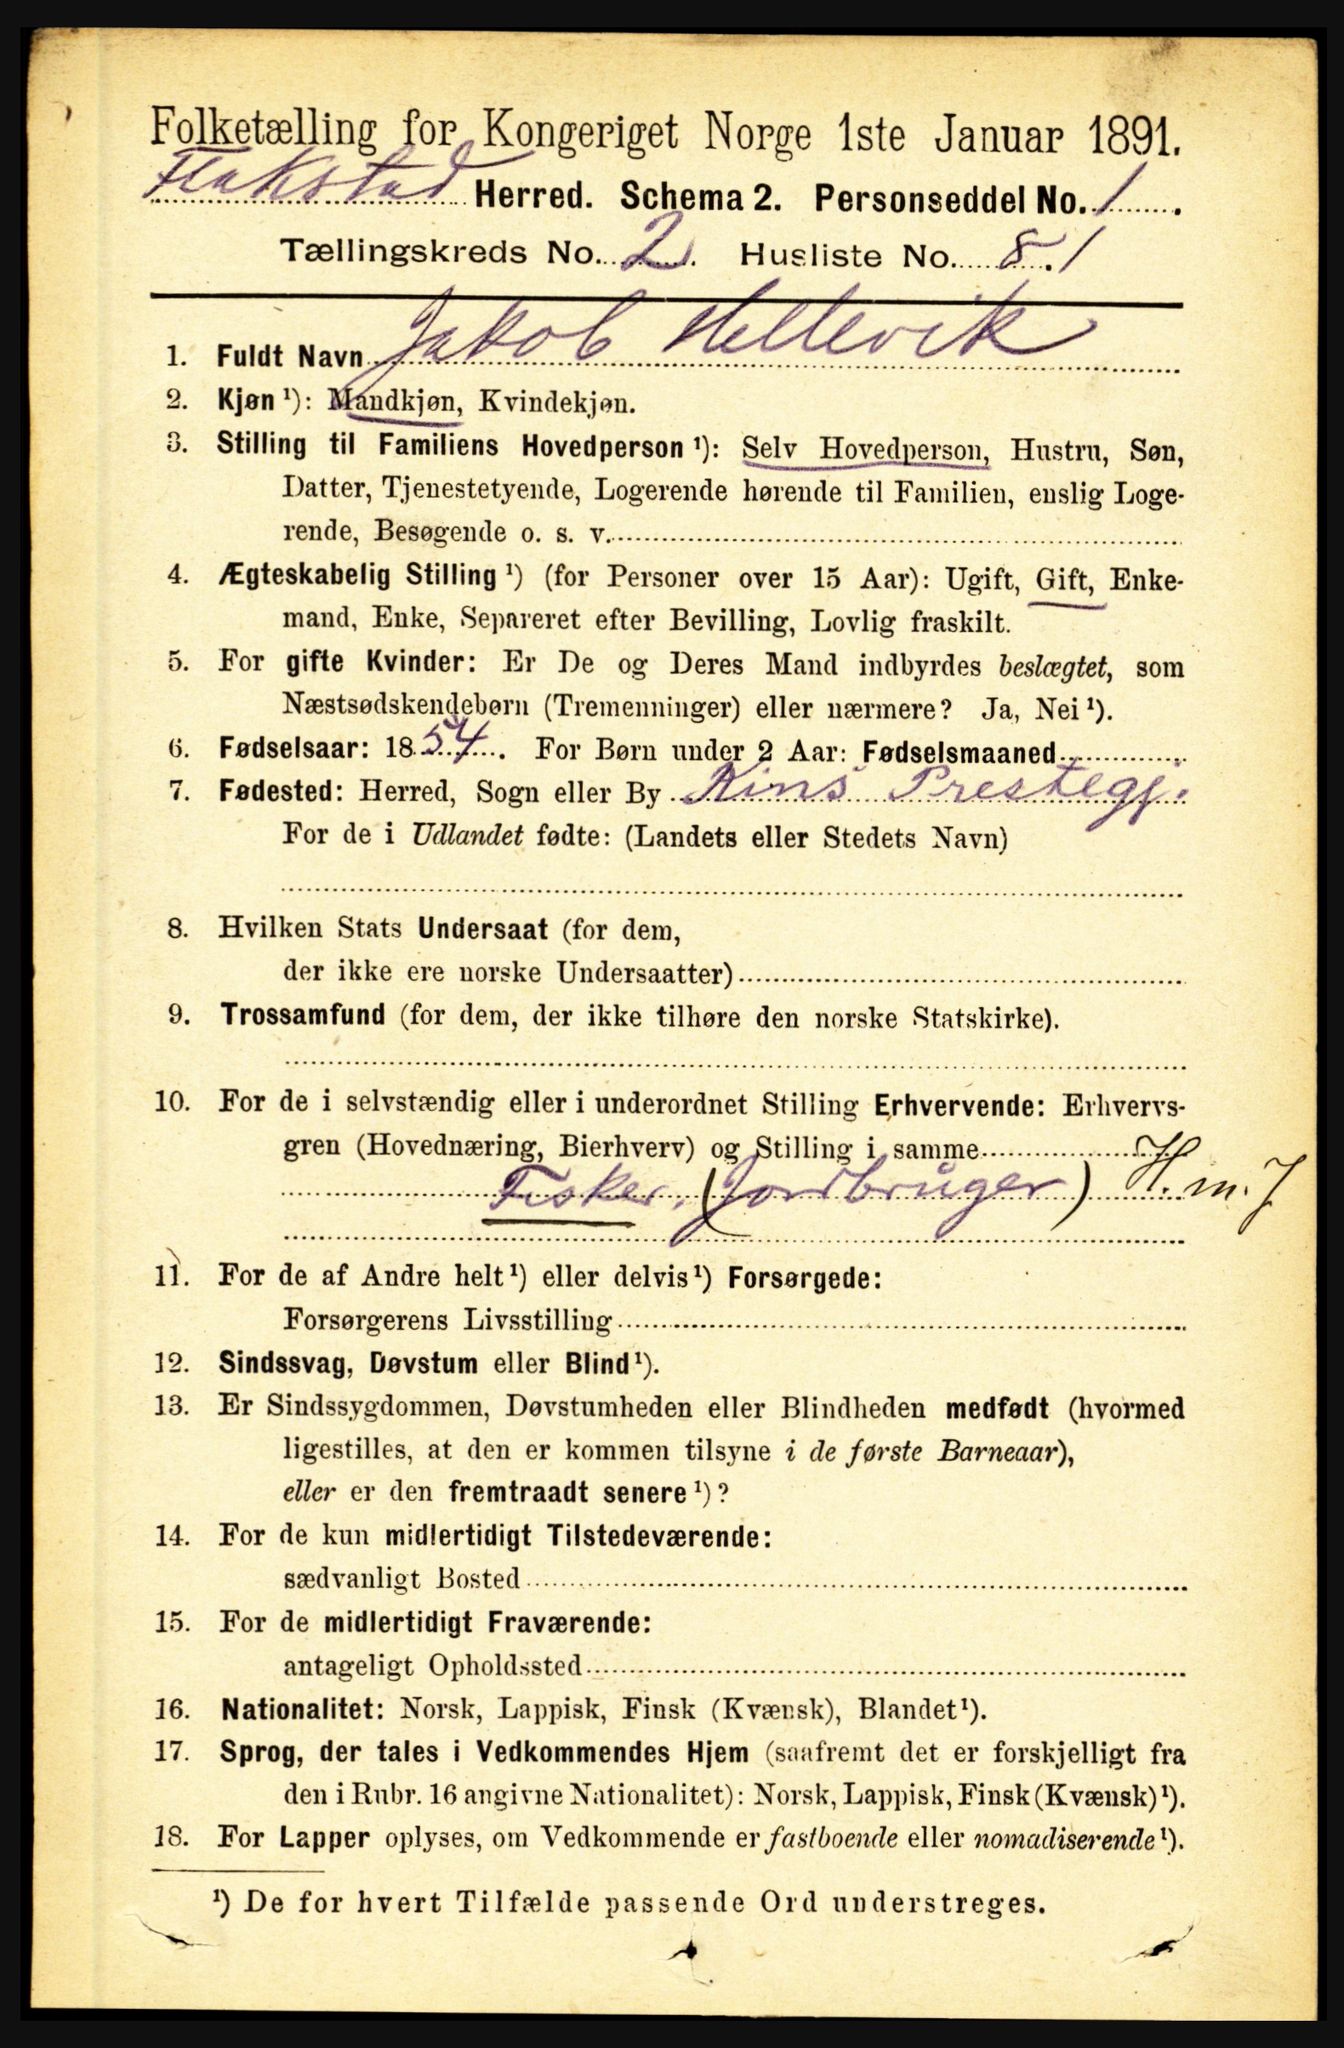 Folketælling for Kongeriget Norge 1ste Januar 1891.
Flakstad Herred. Schema 2. Personseddel No. 1.
Tællingskreds No. 2. Husliste No. 81
1. Fuldt Navn Jakob Hellevik
2. Kjøn ¹): Mandkjøn, Kvindekjøn.
3. Stilling til Familiens Hovedperson ¹): Selv Hovedperson, Hustru, Søn,
Datter, Tjenestetyende, Logerende hørende til Familien, enslig Loge-
rende, Besøgende o. s. v.
4. Ægteskabelig Stilling ¹) (for Personer over 15 Aar): Ugift, Gift, Enke-
mand, Enke, Separeret efter Bevilling, Lovlig fraskilt.
5. For gifte Kvinder: Er De og Deres Mand indbyrdes beslægtet, som
Næstsødskendebørn (Tremenninger) eller nærmere? Ja, Nei ¹).
6. Fødselsaar: 1854. For Børn under 2 Aar: Fødselsmaaned
7. Fødested: Herred, Sogn eller By Kins Prestegj.
For de i Udlandet fødte: (Landets eller Stedets Navn)
8. Hvilken Stats Undersaat (for dem,
der ikke ere norske Undersaatter)
9. Trossamfund (for dem, der ikke tilhøre den norske Statskirke).
10. For de i selvstændig eller i underordnet Stilling Erhvervende: Erhvervs-
gren (Hovednæring, Bierhverv) og Stilling i samme
Fisker. (Jordbrüger) H. m. J
11. For de af Andre helt ¹) eller delvis ¹) Forsørgede:
Forsørgerens Livsstilling
12. Sindssvag, Døvstum eller Blind ¹).
13. Er Sindssygdommen, Døvstumheden eller Blindheden medfødt (hvormed
ligestilles, at den er kommen tilsyne i de første Barneaar),
eller er den fremtraadt senere ¹)?
14. For de kun midlertidigt Tilstedeværende:
sædvanligt Bosted
15. For de midlertidigt Fraværende:
antageligt Opholdssted
16. Nationalitet: Norsk, Lappisk, Finsk (Kvænsk), Blandet ¹).
17. Sprog, der tales i Vedkommendes Hjem (saafremt det er forskjelligt fra
den i Rubr. 16 angivne Nationalitet): Norsk, Lappisk, Finsk (Kvænsk) ¹).
18. For Lapper oplyses, om Vedkommende er fastboende eller nomadiserende ¹).
¹) De for hvert Tilfælde passende Ord understreges.